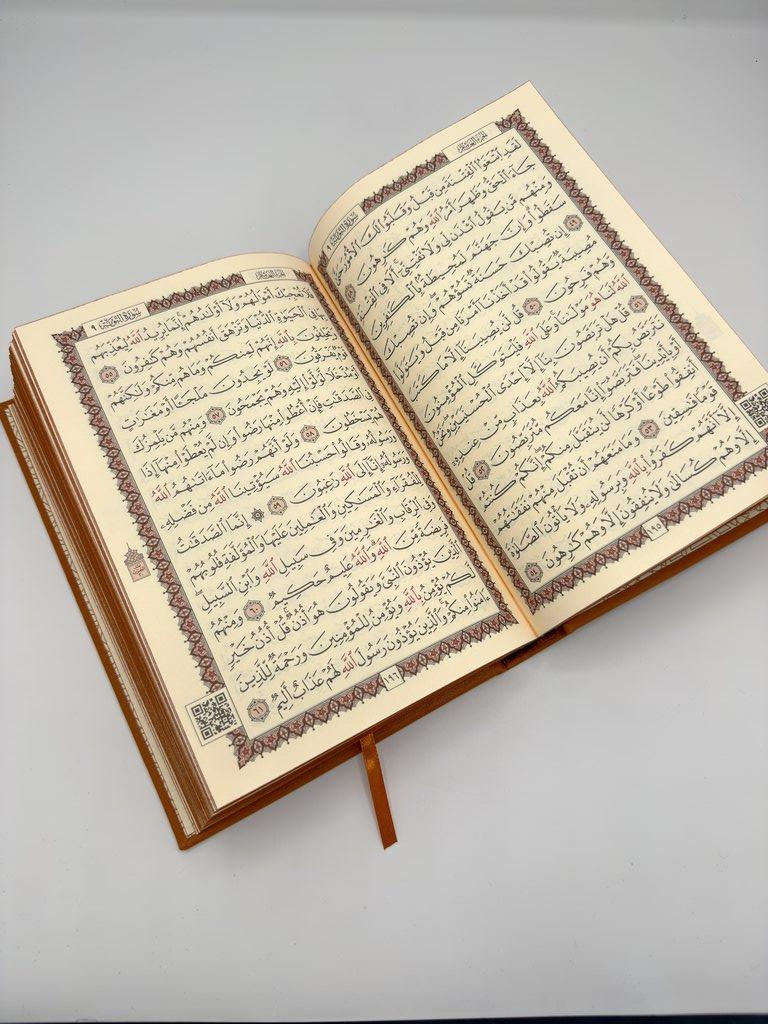 الجزء العاشر
سورة التوبة ٩
لَقَدِ ٱبْتَغَوُا۟ ٱلْفِتْنَةَ مِن قَبْلُ وَقَلَّبُوا۟ لَكَ ٱلْأُمُورَ حَتَّىٰ
جَآءَ ٱلْحَقُّ وَظَهَرَ أَمْرُ ٱللَّهِ وَهُمْ كَٰرِهُونَ ٤٨
وَمِنْهُم مَّن يَقُولُ ٱئْذَن لِّى وَلَا تَفْتِنِّىٓ ۚ أَلَا فِى ٱلْفِتْنَةِ
سَقَطُوا۟ ۗ وَإِنَّ جَهَنَّمَ لَمُحِيطَةٌۢ بِٱلْكَٰفِرِينَ
٤٩ إِن تُصِبْكَ حَسَنَةٌ تَسُؤْهُمْ ۖ وَإِن تُصِبْكَ
مُصِيبَةٌ يَقُولُوا۟ قَدْ أَخَذْنَآ أَمْرَنَا مِن قَبْلُ وَيَتَوَلَّوا۟
وَّهُمْ فَرِحُونَ ٥٠ قُل لَّن يُصِيبَنَآ إِلَّا مَا كَتَبَ
ٱللَّهُ لَنَا هُوَ مَوْلَىٰنَا ۚ وَعَلَى ٱللَّهِ فَلْيَتَوَكَّلِ ٱلْمُؤْمِنُونَ
٥١ قُلْ هَلْ تَرَبَّصُونَ بِنَآ إِلَّآ إِحْدَى ٱلْحُسْنَيَيْنِ ۖ وَنَحْنُ
نَتَرَبَّصُ بِكُمْ أَن يُصِيبَكُمُ ٱللَّهُ بِعَذَابٍ مِّنْ عِندِهِۦٓ
أَوْ بِأَيْدِينَا ۖ فَتَرَبَّصُوٓا۟ إِنَّا مَعَكُم مُّتَرَبِّصُونَ ٥٢ قُلْ
أَنفِقُوا۟ طَوْعًا أَوْ كَرْهًا لَّن يُتَقَبَّلَ مِنكُمْ ۖ إِنَّكُمْ كُنتُمْ
قَوْمًا فَٰسِقِينَ ٥٣ وَمَا مَنَعَهُمْ أَن تُقْبَلَ مِنْهُمْ نَفَقَٰتُهُمْ
إِلَّآ أَنَّهُمْ كَفَرُوا۟ بِٱللَّهِ وَبِرَسُولِهِۦ وَلَا يَأْتُونَ ٱلصَّلَوٰةَ
إِلَّا وَهُمْ كُسَالَىٰ وَلَا يُنفِقُونَ إِلَّا وَهُمْ كَٰرِهُونَ ٥٤
١٩٥
الجزء العاشر
سورة التوبة ٩
فَلَا تُعْجِبْكَ أَمْوَٰلُهُمْ وَلَآ أَوْلَٰدُهُمْ ۚ إِنَّمَا يُرِيدُ ٱللَّهُ لِيُعَذِّبَهُم
بِهَا فِى ٱلْحَيَوٰةِ ٱلدُّنْيَا وَتَزْهَقَ أَنفُسُهُمْ وَهُمْ كَٰفِرُونَ ٥٥
وَيَحْلِفُونَ بِٱللَّهِ إِنَّهُمْ لَمِنكُمْ وَمَا هُم مِّنكُمْ وَلَٰكِنَّهُمْ
قَوْمٌ يَفْرَقُونَ ٥٦ لَوْ يَجِدُونَ مَلْجَـًٔا أَوْ مَغَٰرَٰتٍ
أَوْ مُدَّخَلًا لَّوَلَّوْا۟ إِلَيْهِ وَهُمْ يَجْمَحُونَ ٥٧ وَمِنْهُم مَّن يَلْمِزُكَ
فِى ٱلصَّدَقَٰتِ فَإِنْ أُعْطُوا۟ مِنْهَا رَضُوا۟ وَإِن لَّمْ يُعْطَوْا۟ مِنْهَآ إِذَا
هُمْ يَسْخَطُونَ ٥٨ وَلَوْ أَنَّهُمْ رَضُوا۟ مَآ ءَاتَىٰهُمُ ٱللَّهُ
وَرَسُولُهُۥ وَقَالُوا۟ حَسْبُنَا ٱللَّهُ سَيُؤْتِينَا ٱللَّهُ مِن فَضْلِهِۦ
وَرَسُولُهُۥٓ إِنَّآ إِلَى ٱللَّهِ رَٰغِبُونَ ٥٩ ۞ إِنَّمَا ٱلصَّدَقَٰتُ
لِلْفُقَرَآءِ وَٱلْمَسَٰكِينِ وَٱلْعَٰمِلِينَ عَلَيْهَا وَٱلْمُؤَلَّفَةِ قُلُوبُهُمْ
وَفِى ٱلرِّقَابِ وَٱلْغَٰرِمِينَ وَفِى سَبِيلِ ٱللَّهِ وَٱبْنِ ٱلسَّبِيلِ ۖ
فَرِيضَةً مِّنَ ٱللَّهِ ۗ وَٱللَّهُ عَلِيمٌ حَكِيمٌ ٦٠ وَمِنْهُمُ
ٱلَّذِينَ يُؤْذُونَ ٱلنَّبِىَّ وَيَقُولُونَ هُوَ أُذُنٌ ۚ قُلْ أُذُنُ خَيْرٍ
لَّكُمْ يُؤْمِنُ بِٱللَّهِ وَيُؤْمِنُ لِلْمُؤْمِنِينَ وَرَحْمَةٌ لِّلَّذِينَ
ءَامَنُوا۟ مِنكُمْ ۚ وَٱلَّذِينَ يُؤْذُونَ رَسُولَ ٱللَّهِ لَهُمْ عَذَابٌ أَلِيمٌ ٦١
١٩٦